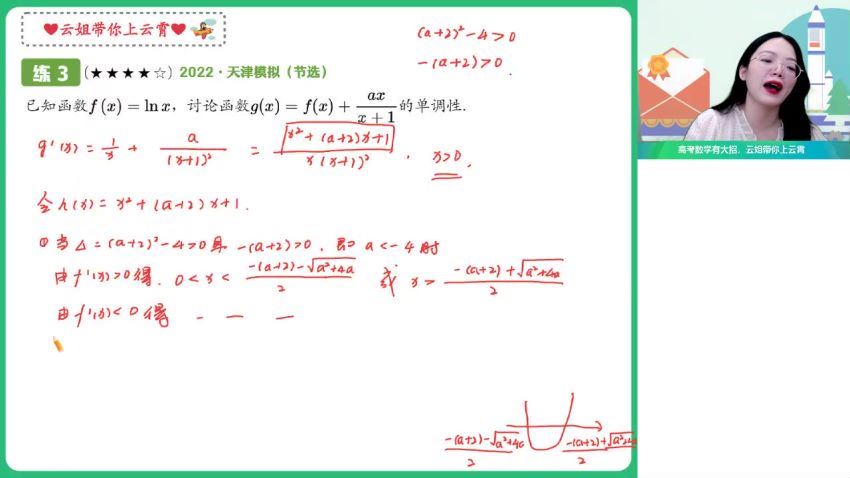 ♥云姐带你上云霄♥
练 3 (★★★★☆) 2022·天津模拟（节选）
已知函数f(x) = ln x，讨论函数g(x) = f(x) + ax/(x+1)的单调性.
(a+2)² - 4 > 0
-(a+2) > 0 .
g'(x) = 1/x + a/(x+1)² = (x² + (a+2)x+1)/(x(x+1)²) . x>0.
令h(x) = x² + (a+2)x+1.
① 当 Δ = (a+2)² - 4 > 0 且 -(a+2) > 0 . 即 a < -4 时
由f'(x)>0 得. 0 < x < (-(a+2) - √(a²+4a))/2 或 x > (-(a+2) + √(a²+4a))/2
由f'(x) < 0 得 - - -
(-(a+2) - √(a²+4a))/2 (-(a+2) + √(a²+4a))/2
高考数学有大招，云姐带你上云霄